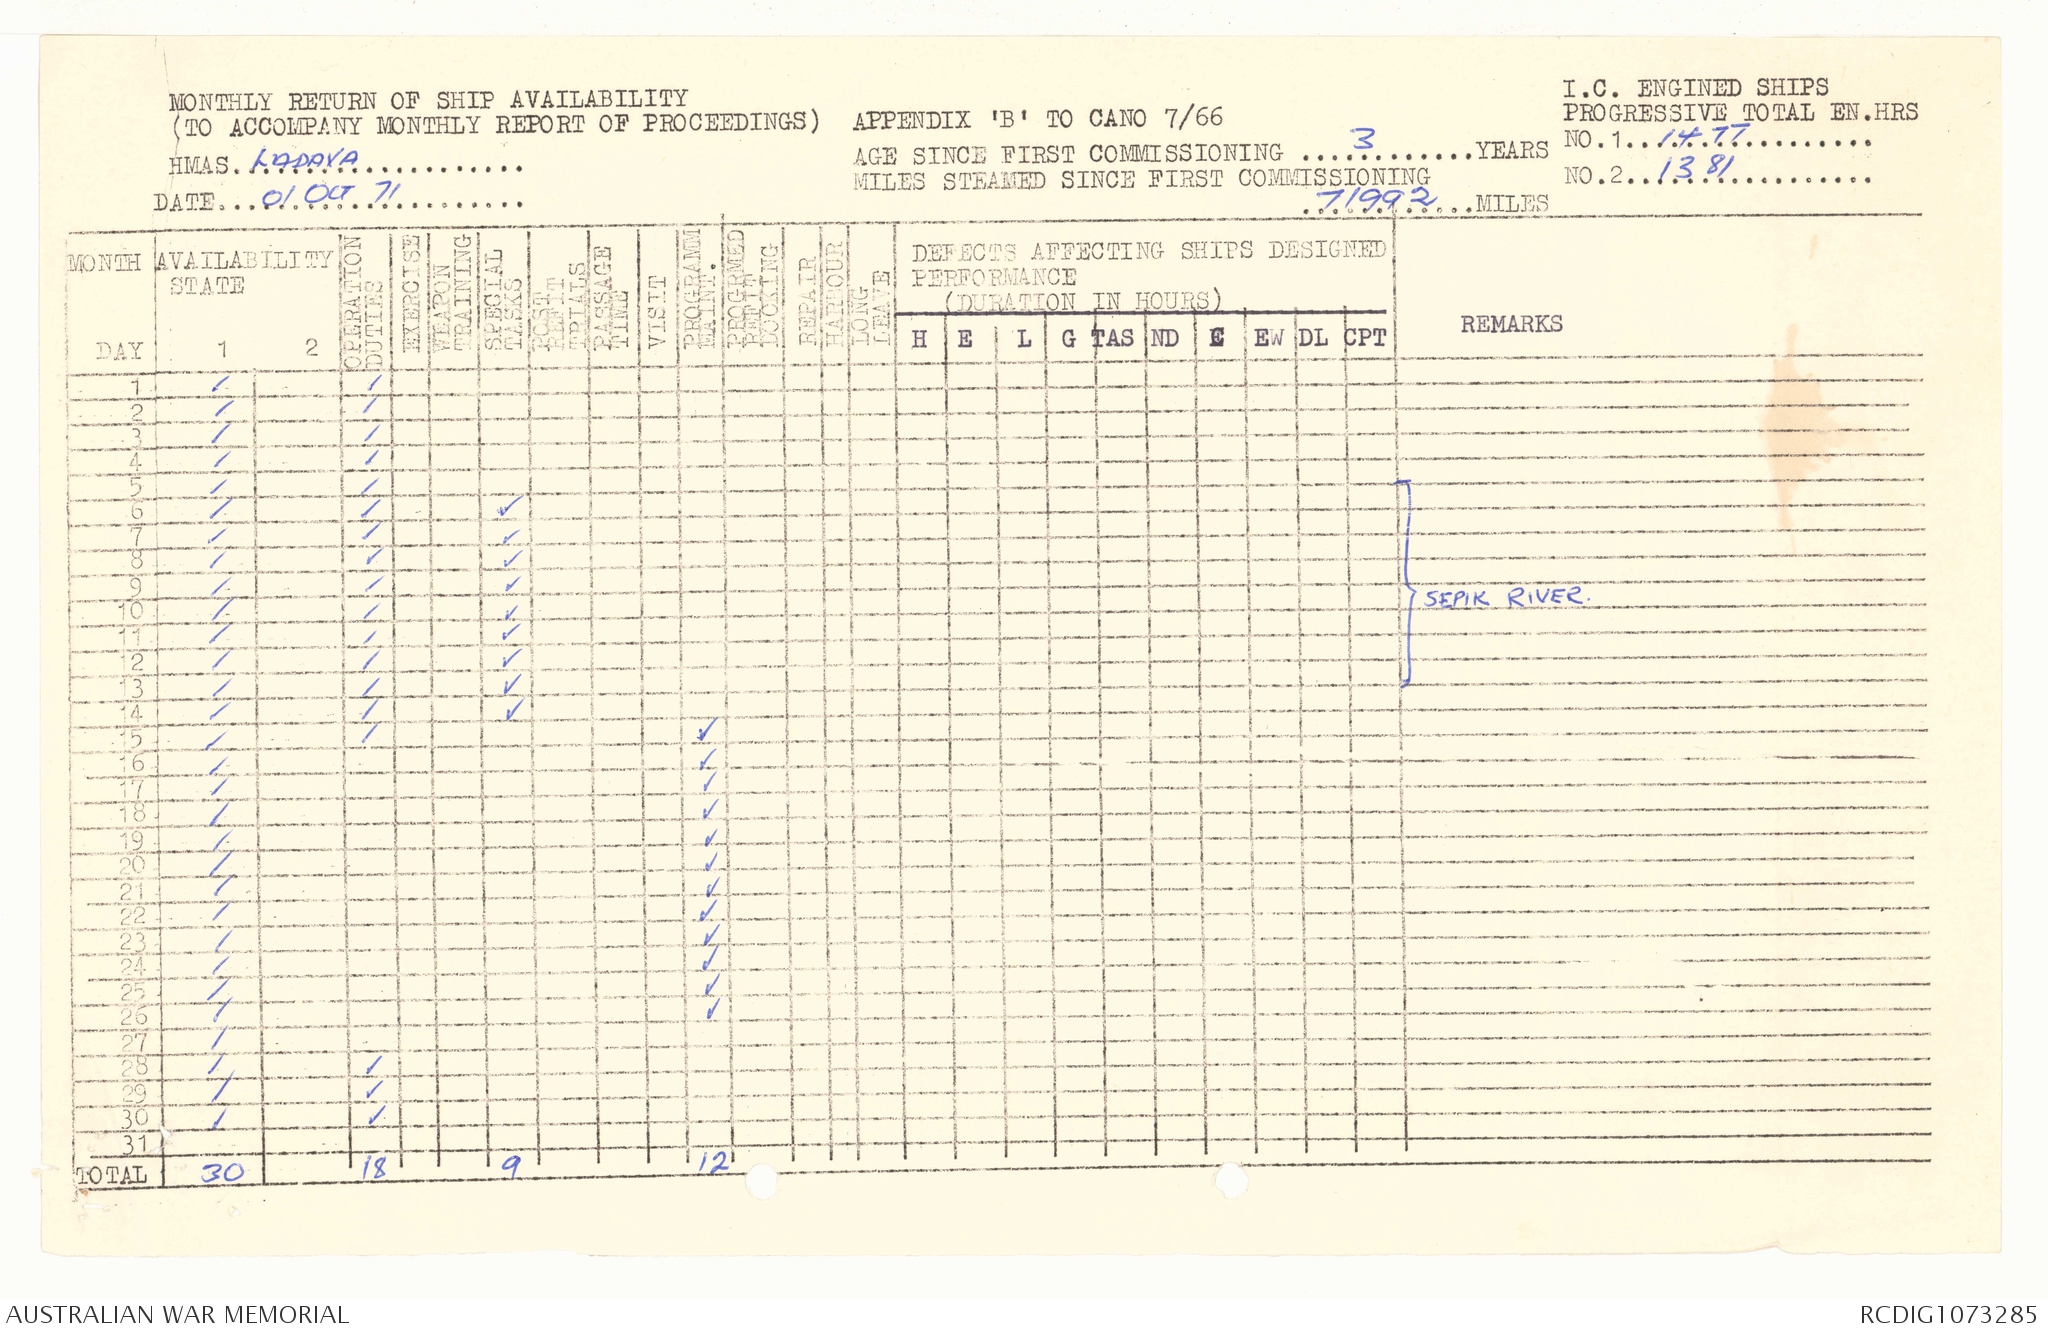 MONTHLY RETURN OF SHIP AVAILABILITY
(TO ACCOMPANY MONTHLY REPORT OF PROCEEDINGS) APPENDIX 'B' TO CANO 7/66
I.C. ENGINED SHIPS
PROGRESSIVE TOTAL EN.HRS
HMAS. LADAVA
DATE... 01 OCT 71
AGE SINCE FIRST COMMISSIONING 3 YEARS
MILES STEAMED SINCE FIRST COMMISSIONING
71992 MILES
NO.1.. 1477
NO.2.. 1381
MONTH
DAY
AVAILABILITY
STATE
1 2
OPERATION
DUTIES
EXERCISE
WEAPON
TRAINING
SPECIAL
TASKS
POST
REFIT
TRIALS
PASSAGE
TIME
VISIT
PROGRAMM
MAINT.
PROGRMED
REFIT
DOCKING
REPAIR
HARBOUR
LONG
LEAVE
DEFECTS AFFECTING SHIPS DESIGNED
PERFORMANCE
(DURATION IN HOURS)
H E L G TAS ND C EW DL CPT
REMARKS
1 ✓ ✓
2 ✓ ✓
3 ✓ ✓
4 ✓ ✓
5 ✓ ✓
6 ✓ ✓ ✓
7 ✓ ✓ ✓
8 ✓ ✓ ✓
9 ✓ ✓ ✓
10 ✓ ✓ ✓ SEPIK RIVER.
11 ✓ ✓ ✓
12 ✓ ✓ ✓
13 ✓ ✓ ✓
14 ✓ ✓ ✓
15 ✓ ✓ ✓
16 ✓ ✓
17 ✓ ✓
18 ✓ ✓
19 ✓ ✓
20 ✓ ✓
21 ✓ ✓
22 ✓ ✓
23 ✓ ✓
24 ✓ ✓
25 ✓ ✓
26 ✓ ✓
27 ✓
28 ✓ ✓
29 ✓ ✓
30 ✓ ✓
31
TOTAL 30 18 9 12
AUSTRALIAN WAR MEMORIAL
RCDIG1073285